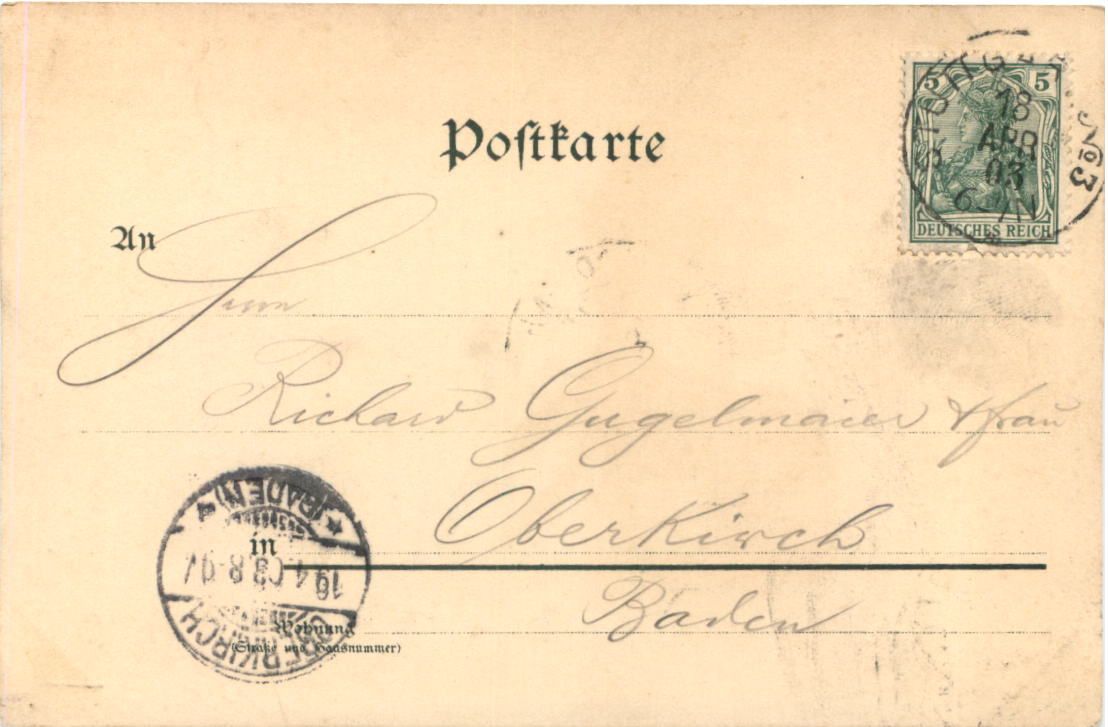 Postkarte
5 5
DEUTSCHES REICH
STUTTGART No 3
18
APR
03
An
Herrn
Richard Gugelmaier & frau
Oberkirch
in
Baden
Wohnung
(Straße und Hausnummer)
OBERKIRCH
19.4.03.8-9V
* (BADEN)